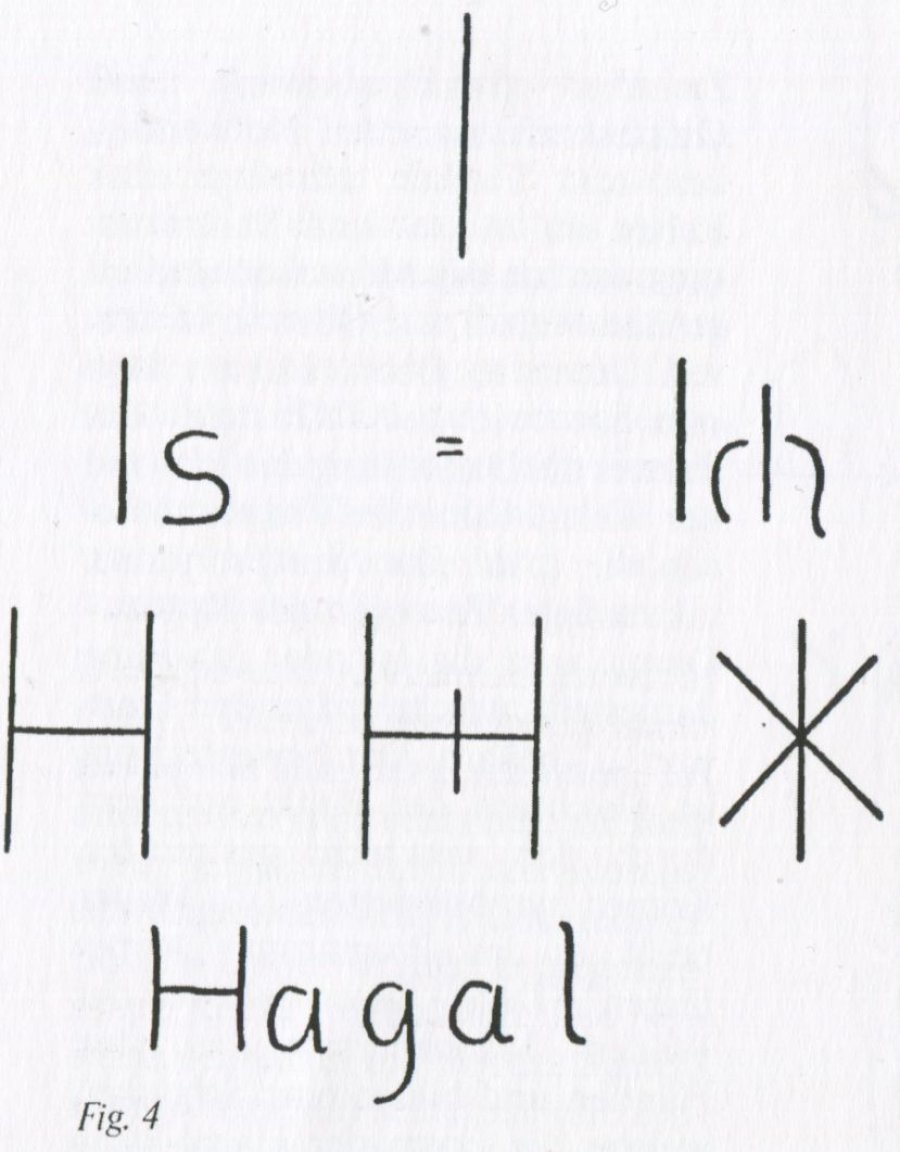 I
Is = Ich
H H *
Hagal
Fig. 4